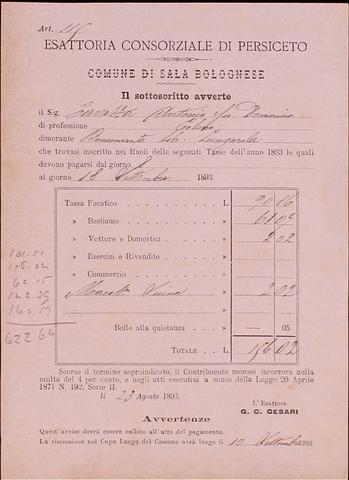 Art. 115
ESATTORIA CONSORZIALE DI PERSICETO
COMUNE DI SALA BOLOGNESE
Il sottoscritto avverte
il Sig. Antonio fu
di professione
dimorante
che trovasi inscritto nei Ruoli delle seguenti Tasse dell'anno 1893 le quali
devono pagarsi dal giorno 8
al giorno 18 Settembre 1893.
Tassa Focatico L. 90 06
» Bestiame » 61 02
» Vetture e Domestici » 2 02
» Esercizi e Rivendite »
» Commercio »
2 02
Bollo alla quietanza » — 05
TOTALE L. 156 02
622 64
Scorso il termine sopraindicato, il Contribuente moroso incorrerà nella
multa del 4 per cento, e negli atti esecutivi a senso della Legge 20 Aprile
1871 N. 192, Serie II.
Il 23 Agosto 1893.
L'Esattore
G. C. CESARI
Avvertenze
Quest'avviso dovrà essere esibito all'atto del pagamento.
La riscossione nel Capo Luogo del Comune avrà luogo il 10 Settembre 1893